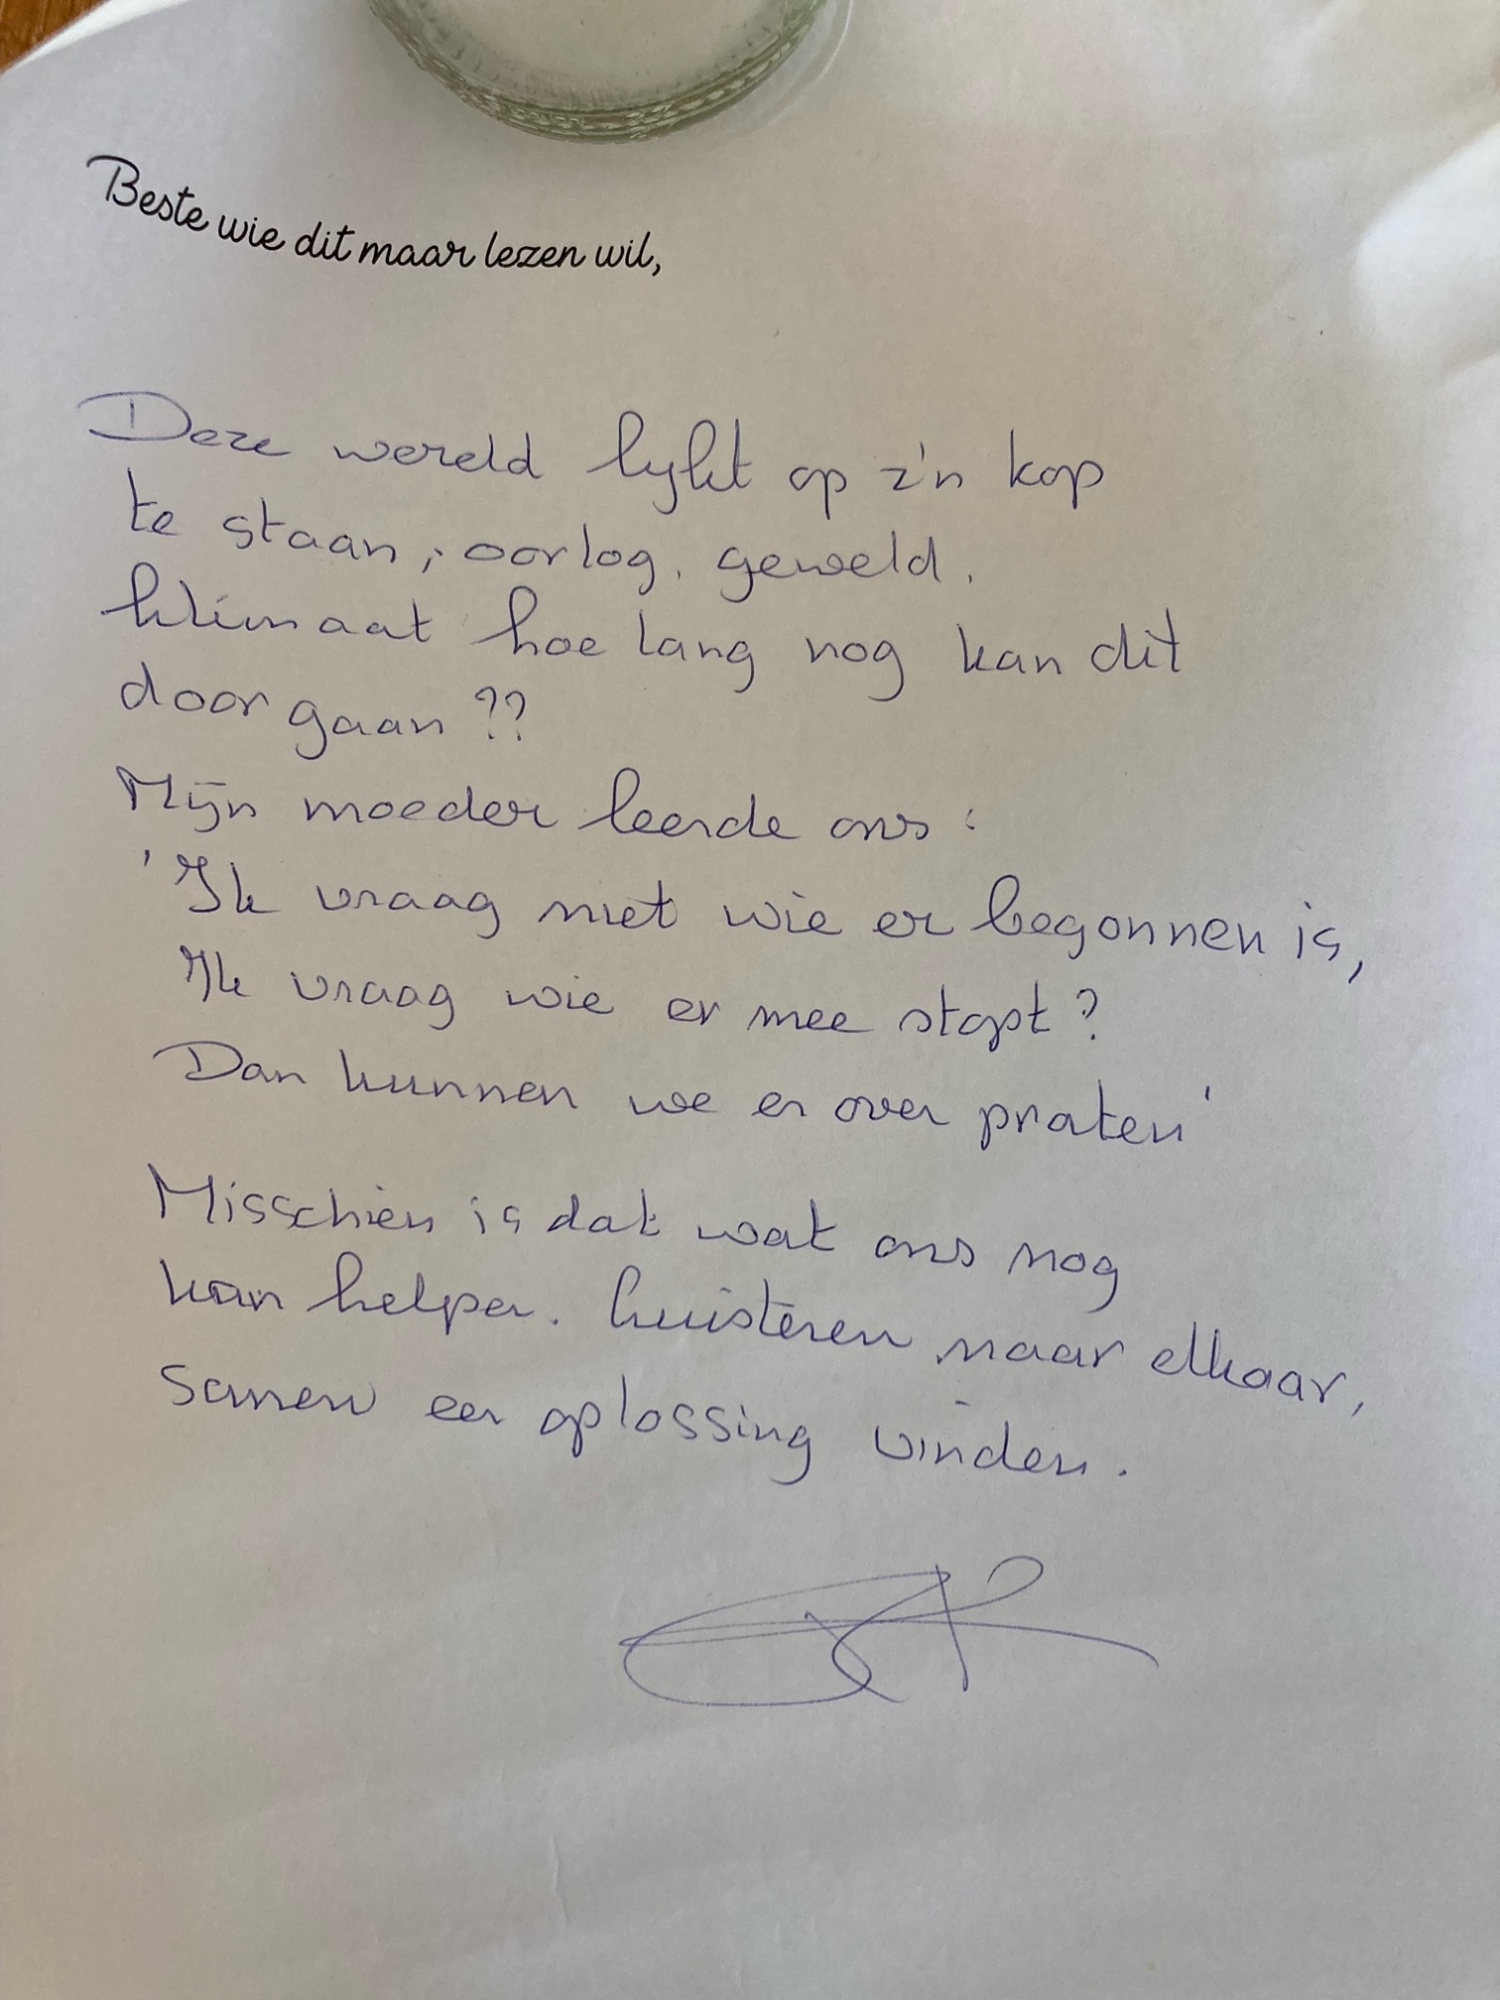 Beste wie dit maar lezen wil,
Deze wereld lijkt op z'n kop
te staan, oorlog, geweld.
klimaat hoe lang nog kan dit
door gaan ??
Mijn moeder leerde ons :
'Ik vraag niet wie er begonnen is,
Ik vraag wie er mee stopt ?
Dan kunnen we er over praten'
Misschien is dat wat ons nog
kan helpen. luisteren naar elkaar,
samen een oplossing vinden.